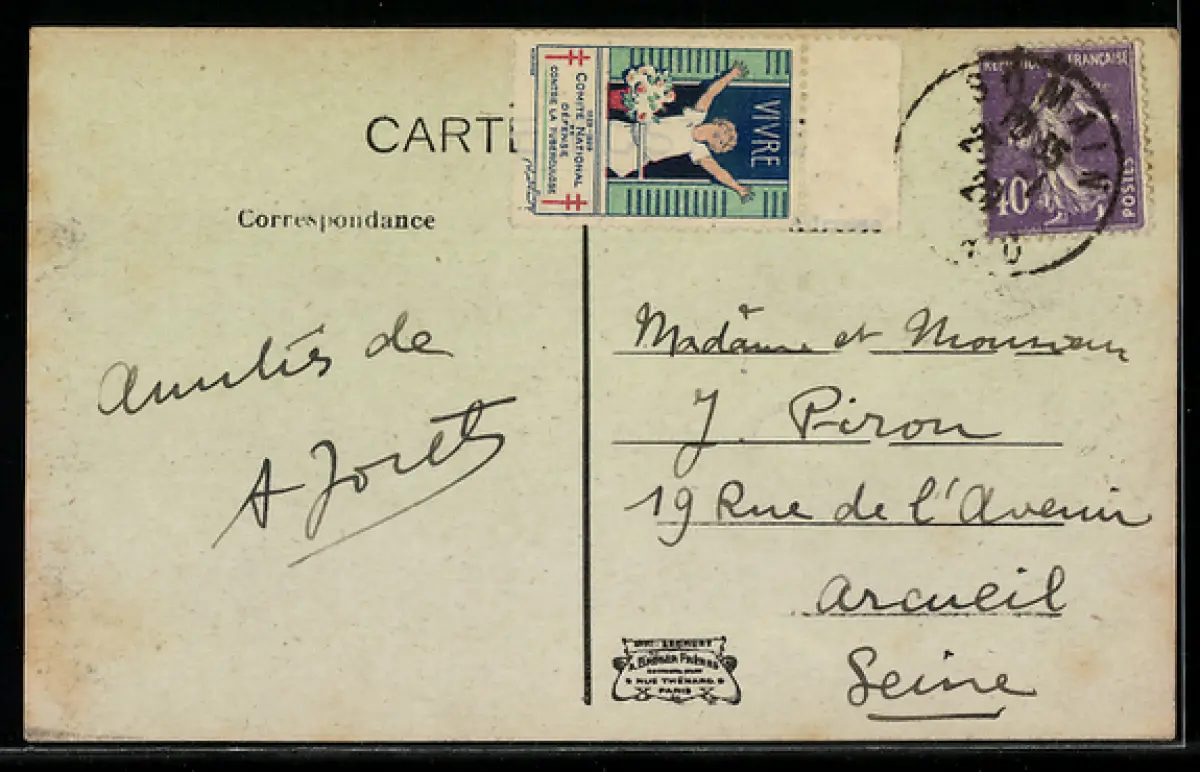 CARTE
Correspondance
Amitiés de
A Joret
VIVRE
COMITÉ NATIONAL
DE
DÉFENSE
CONTRE LA TUBERCULOSE
RÉPUBLIQUE FRANÇAISE
40
POSTES
SOMAIN
Madame et Monsieur
J. Piron
19 Rue de l'Avenir
Arcueil
Seine
A. BRÉGER FRÈRES
9 RUE THÉNARD 9
PARIS